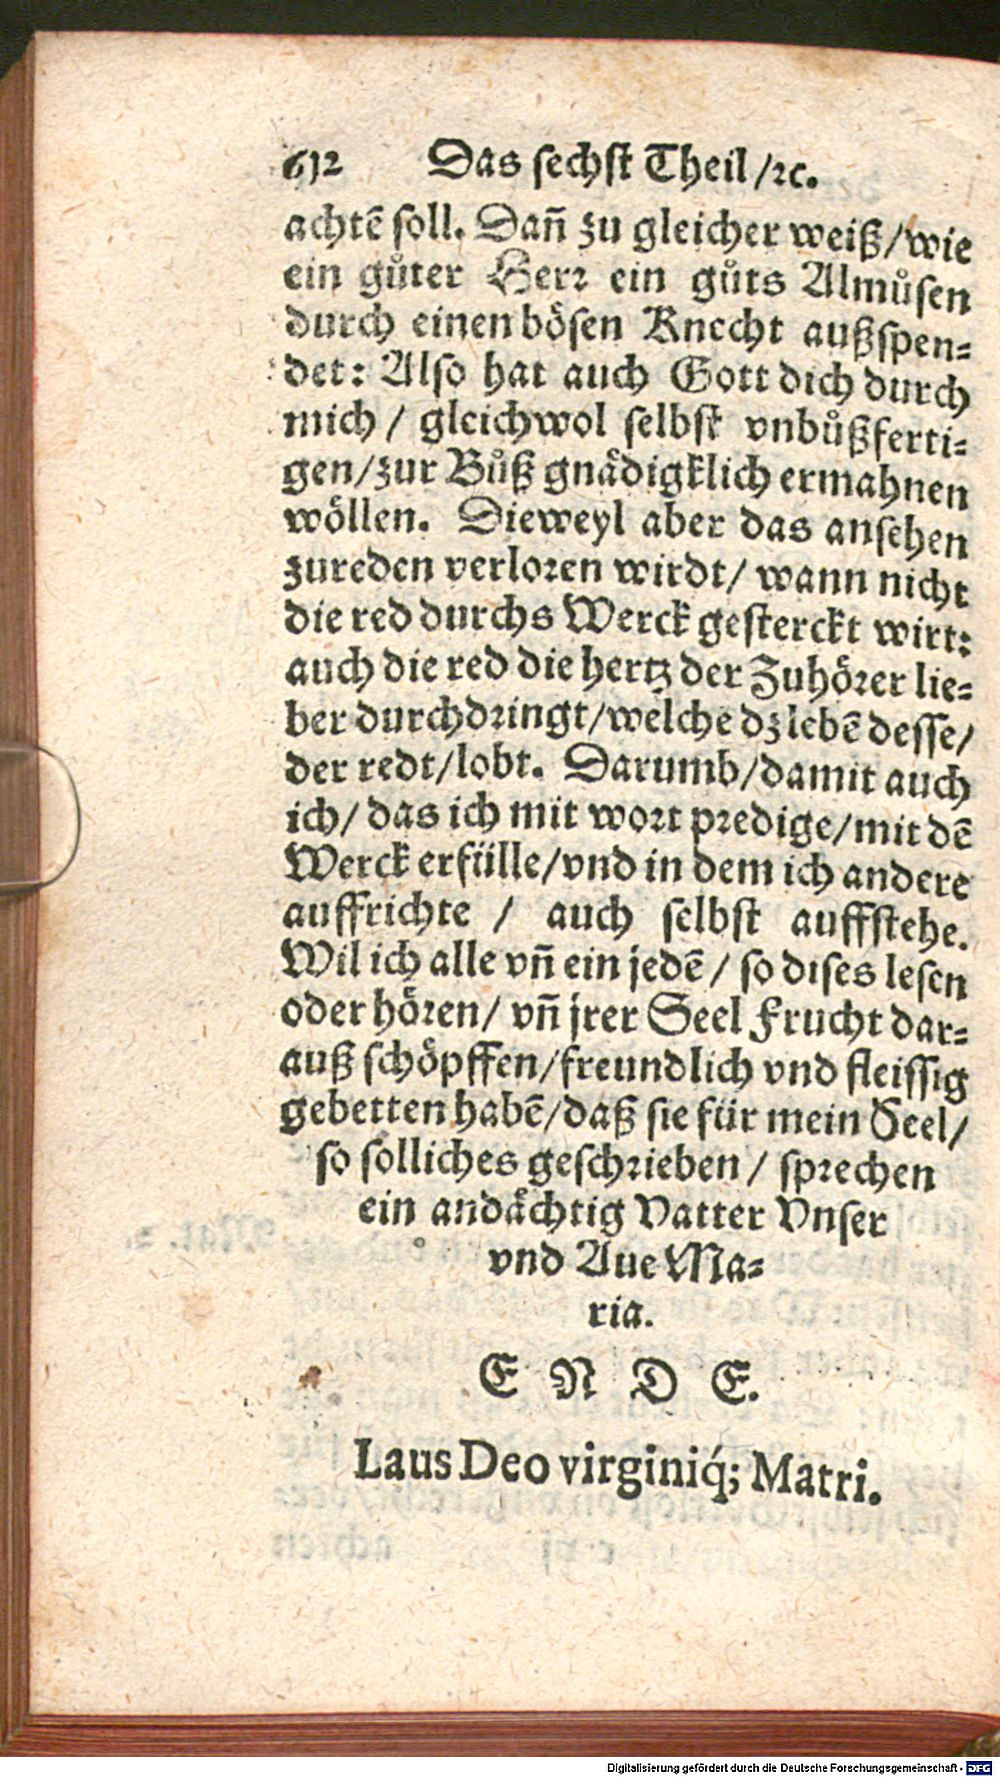 612 Das sechst Theil /ꝛc.
achtẽ soll. Dañ zu gleicher weiß/wie
ein gůter Herꝛ ein gůts Almůsen
durch einen bösen Knecht außspen-
det: Also hat auch Gott dich durch
mich / gleichwol selbst vnbůßferti-
gen/zur Bůß gnädigklich ermahnen
wöllen. Dieweyl aber das ansehen
zureden verloꝛen wirdt/ wann nicht
die red durchs Werck gesterckt wirt:
auch die red die hertz der Zuhöꝛer lie-
ber durchdꝛingt/welche dz lebẽ desse/
der redt/lobt. Darumb/damit auch
ich/ das ich mit woꝛt pꝛedige/mit dẽ
Werck erfülle/vnd in dem ich andere
auffrichte / auch selbst auffstehe.
Wil ich alle vñ ein jedẽ / so dises lesen
oder höꝛen/ vñ jrer Seel Frucht dar-
auß schöpffen/freundlich vnd fleissig
gebetten habẽ/daß sie für mein Seel/
so solliches geschꝛieben / spꝛechen
ein andächtig Vatter Vnser
vnd Aue Ma-
ria.
E N D E.
Laus Deo virginiq́; Matri.
Digitalisierung gefördert durch die Deutsche Forschungsgemeinschaft - DFG